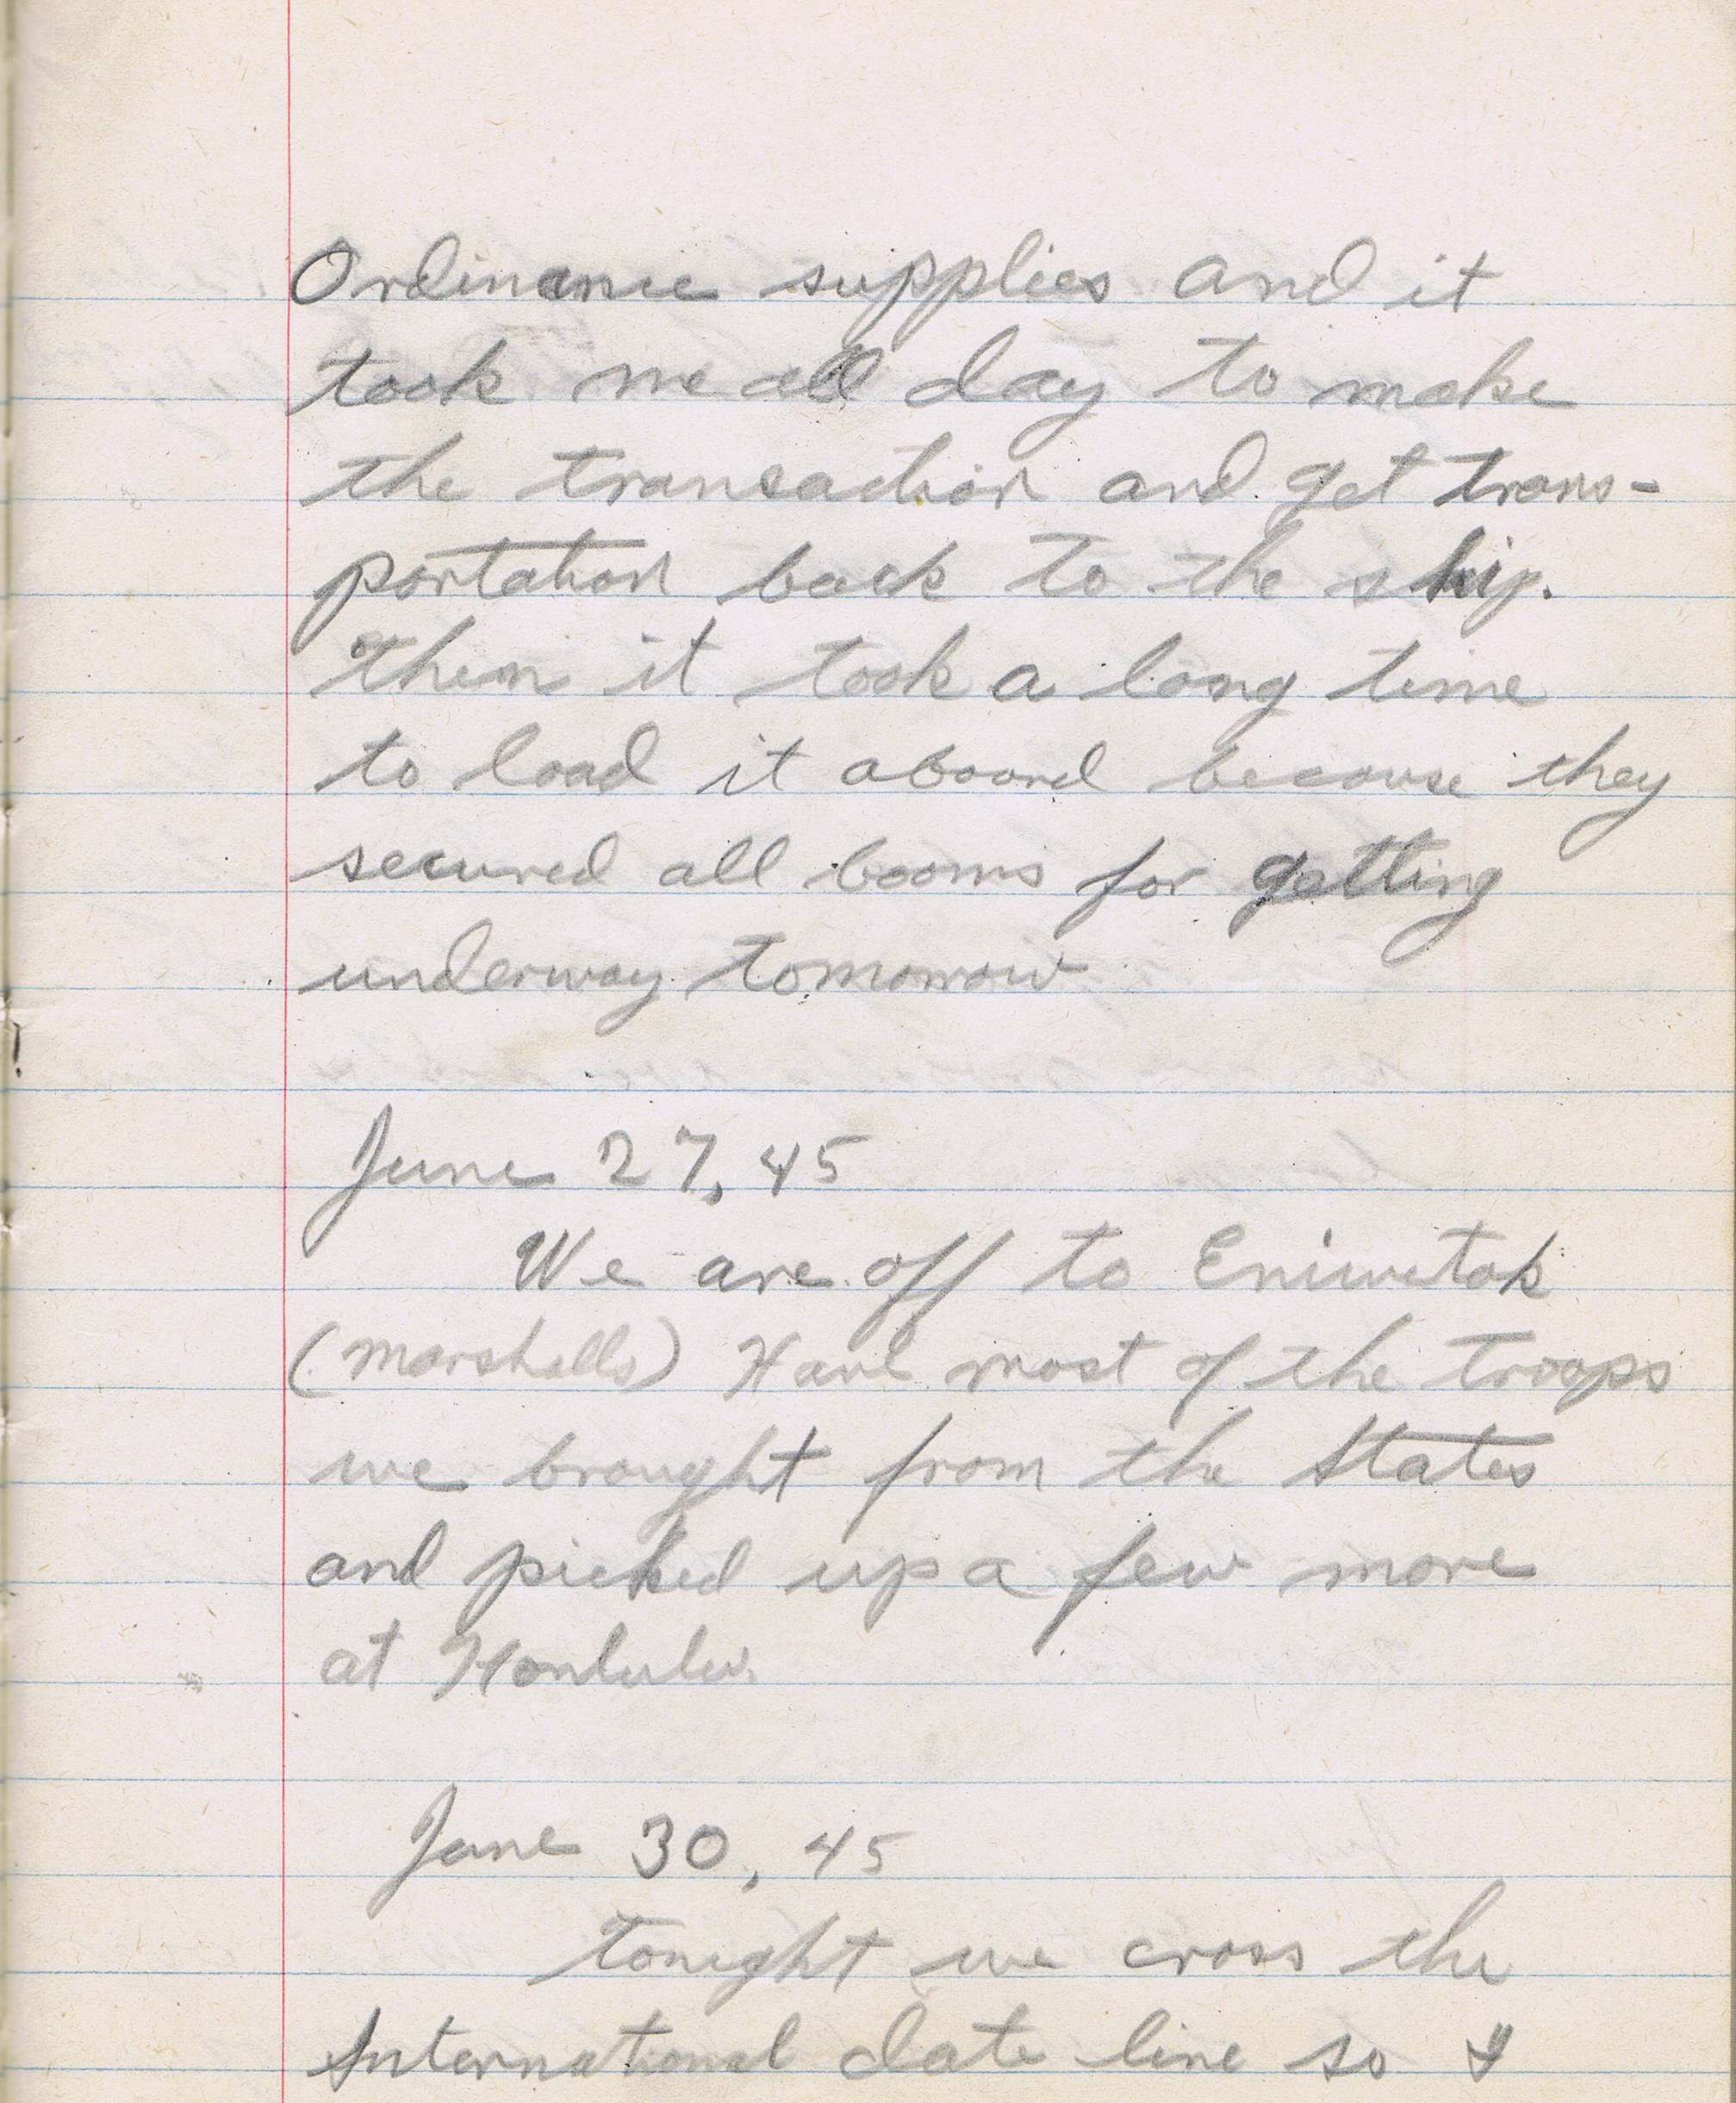 Ordinance supplies and it
took me all day to make
the transaction and get trans-
portation back to the ship.
Then it took a long time
to load it aboard because they
secured all booms for getting
underway tomorrow
June 27, 45
We are off to Eniwetok
(Marshalls) Have most of the troops
we brought from the States
and picked up a few more
at Honlulu.
June 30, 45
Tonight we cross the
International date line so I